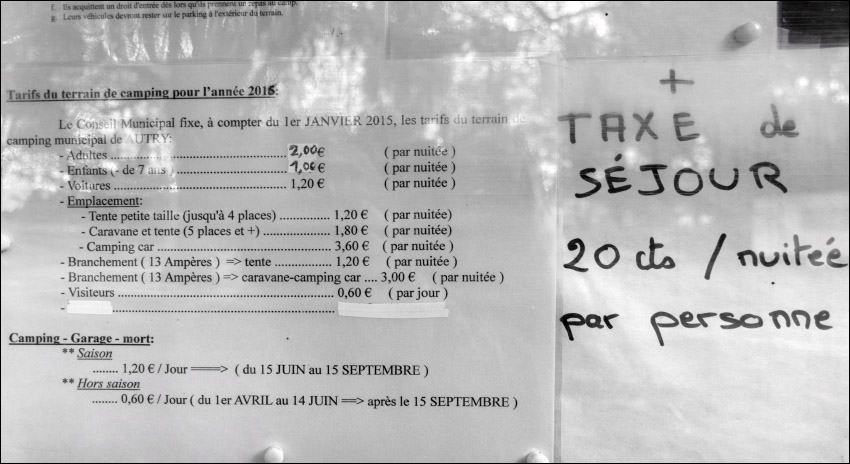 f. Ils acquittent un droit d'entrée dès lors qu'ils prennent un repas au camp.
g. Leurs véhicules devront rester sur le parking à l'extérieur du terrain.
Tarifs du terrain de camping pour l'année 2015:
Le Conseil Municipal fixe, à compter du 1er JANVIER 2015, les tarifs du terrain de
camping municipal de AUTRY:
- Adultes .................................................. 2,00€ ( par nuitée )
- Enfants (- de 7 ans ) ................................ 1,00€ ( par nuitée )
- Voitures .................................................. 1,20 € ( par nuitée )
- Emplacement:
- Tente petite taille (jusqu'à 4 places) ............... 1,20 € ( par nuitée)
- Caravane et tente (5 places et +) ................... 1,80 € ( par nuitée)
- Camping car .............................................. 3,60 € ( par nuitée )
- Branchement ( 13 Ampères ) => tente ................ 1,20 € ( par nuitée )
- Branchement ( 13 Ampères ) => caravane-camping car .... 3,00 € ( par nuitée )
- Visiteurs ................................................................ 0,60 € ( par jour )
- ................................................................
Camping - Garage - mort:
** Saison
........ 1,20 € / Jour ====> ( du 15 JUIN au 15 SEPTEMBRE )
** Hors saison
........ 0,60 € / Jour ( du 1er AVRIL au 14 JUIN ==> après le 15 SEPTEMBRE )
+
TAXE de
SÉJOUR
20 cts / nuiteé
par personne